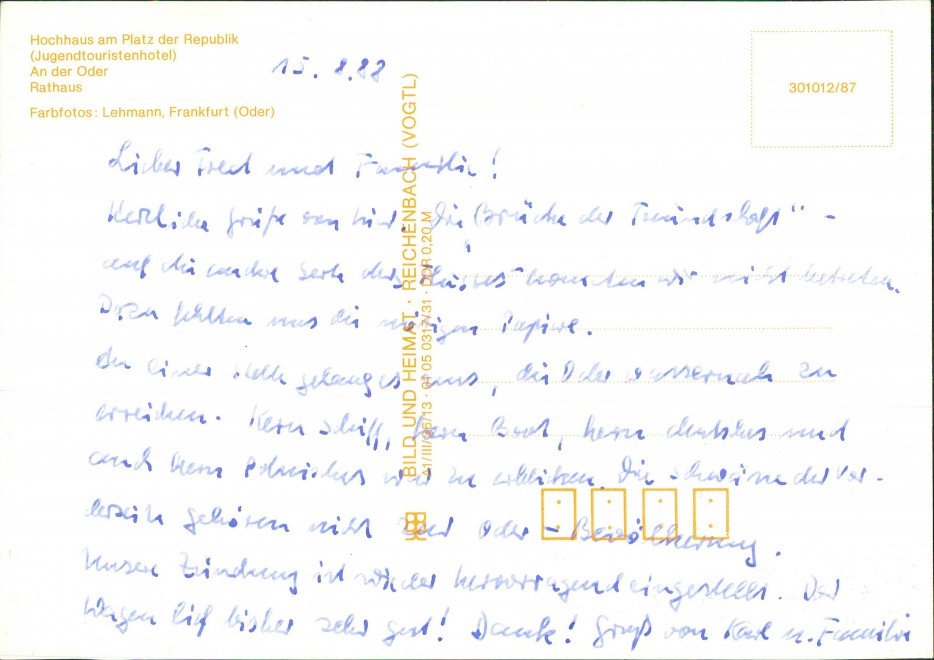 Hochhaus am Platz der Republik
(Jugendtouristenhotel)
An der Oder
Rathaus
Farbfotos: Lehmann, Frankfurt (Oder)
15. 8. 88
301012/87
BILD UND HEIMAT · REICHENBACH (VOGTL)
A1/III/26/13 · 01 05 0317/31 · DDR 0,20 M
Lieber Fred und Familie!
Herzliche Grüße von hier. Die „Brücke der Freundschaft" –
auf die andere Seite des Flusses konnten wir nicht betreten.
Dazu fehlten uns die nötigen Papiere.
An einer Stelle gelang es uns, die Oder wassernah zu
erreichen. Kein Schiff, kein Boot, kein deutsches und
auch kein Polnisches war zu erblicken. Die Schwäne der Vor-
derseite gehören nicht zur Oder-Bevölkerung.
Unsere Zündung ist wieder hervorragend eingestellt. Der
Wagen lief bisher sehr gut! Danke! Gruß von Karl u. Familie